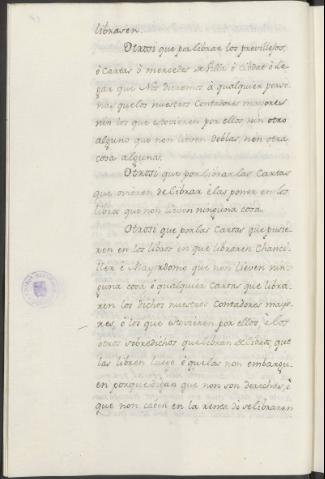 librasen.
Otrosi que por librar los previllejos,
ó Cartas ó mercedes de Villa ó cibdat ó lo-
gar que Nos dieremos á qualquier perso-
nas que los nuestros Contadores mayores
nin los que estovieren por ellos, nin otro
alguno que non lieven doblas, nen otra
cosa alguna.
Otrosi que por librar las Cartas
que ovieren de librar é las poner en los
libros que non lieven ninguna cosa.
Otrosi que por las Cartas que pusie-
ren en los libros en que libraren Chanci-
ller é Mayordomo que non lieven nin-
guna cosa ó qualquier Cartas que libra-
ren los dichos nuestros Contadores mayo-
res, ó los que estovieren por ellos, é los
otros sobredichos que libran que
las libren luego é que las non embarqu-
en porque digan que non son derechas, ó
que non caben en la renta ó se libraren